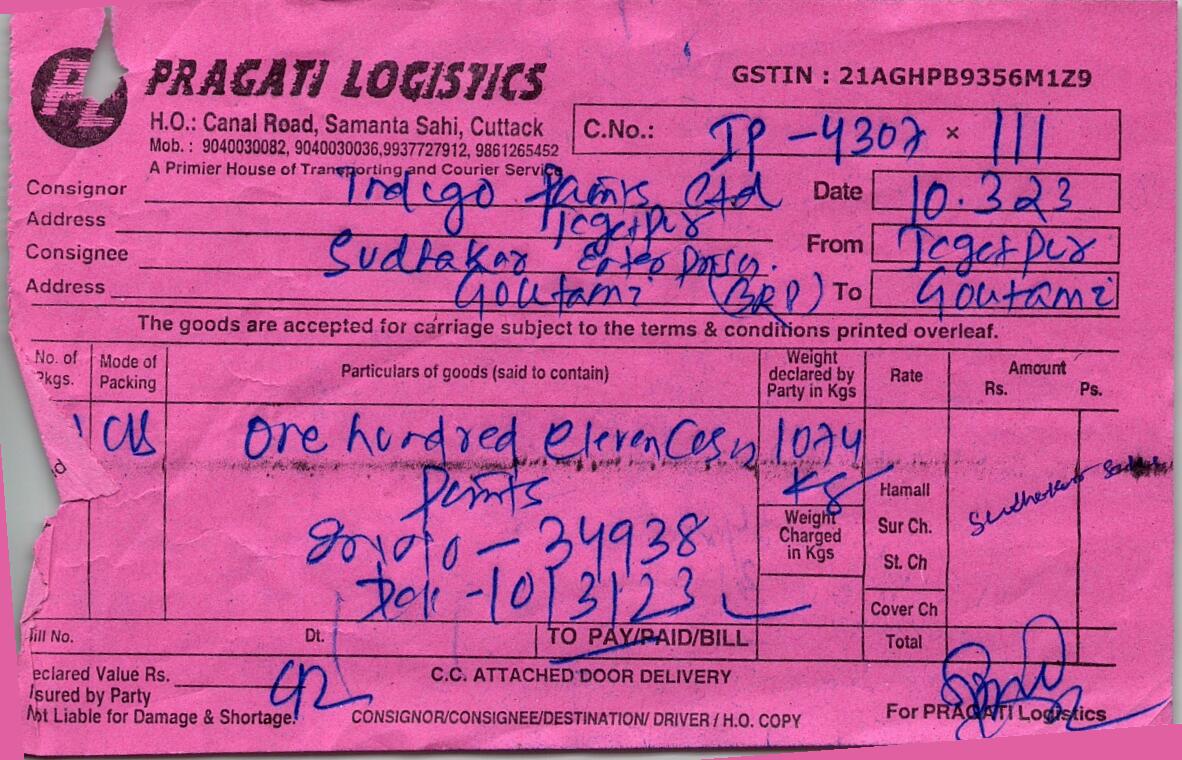 PRAGATI LOGISTICS
GSTIN : 21AGHPB9356M1Z9
H.O.: Canal Road, Samanta Sahi, Cuttack
C.No.: IP - 4307 × 111
Mob. : 9040030082, 9040030036,9937727912, 9861265452
A Primier House of Transporting and Courier Service
Consignor Indigo Paints Ltd Date 10.3.23
Address Jagatpur
Consignee Sudhakar From Jagatpur
Address Goutami (BRP) To Goutami
The goods are accepted for carriage subject to the terms & conditions printed overleaf.
No. of Pkgs. Mode of Packing Particulars of goods (said to contain) Weight declared by Party in Kgs Rate Amount Rs. Ps.
One hundred eleven 1074
Paints Kg Hamall
34938 Weight Charged in Kgs Sur Ch.
St. Ch
10/3/23 Cover Ch
Bill No. Dt. TO PAY/PAID/BILL Total
eclared Value Rs. C.C. ATTACHED DOOR DELIVERY
sured by Party
Not Liable for Damage & Shortage. CONSIGNOR/CONSIGNEE/DESTINATION/ DRIVER / H.O. COPY For PRAGATI Logistics